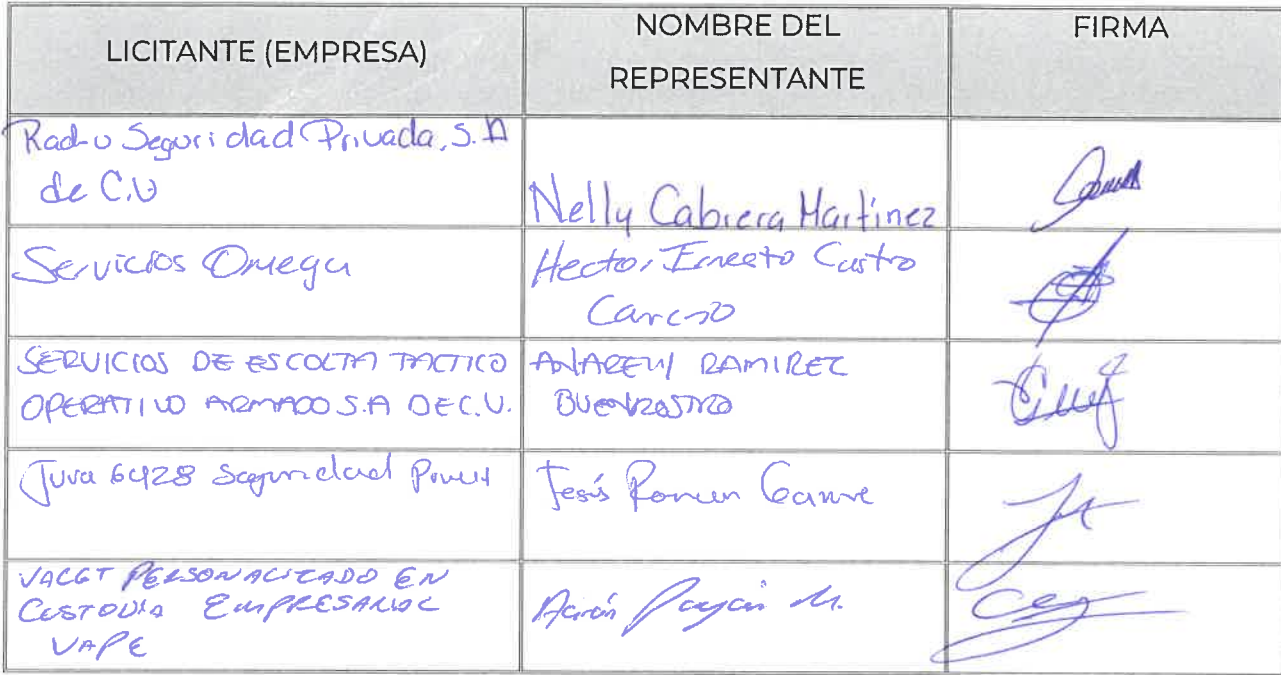 LICITANTE (EMPRESA)
NOMBRE DEL
REPRESENTANTE
FIRMA
Seguridad Privada, S.A
de C.V
Nelly Cabrera Martinez
Servicios Omega
Hector Ernesto Castro
SERVICIOS DE ESCOLTA TACTICO
OPERATIVO ARMADO S.A DE C.V.
RAMIREZ
BUENROSTRO
6428 Seguridad
Jesús
PERSONALIZADO EN
CUSTODIA EMPRESARIAL
VAPE
Aarón